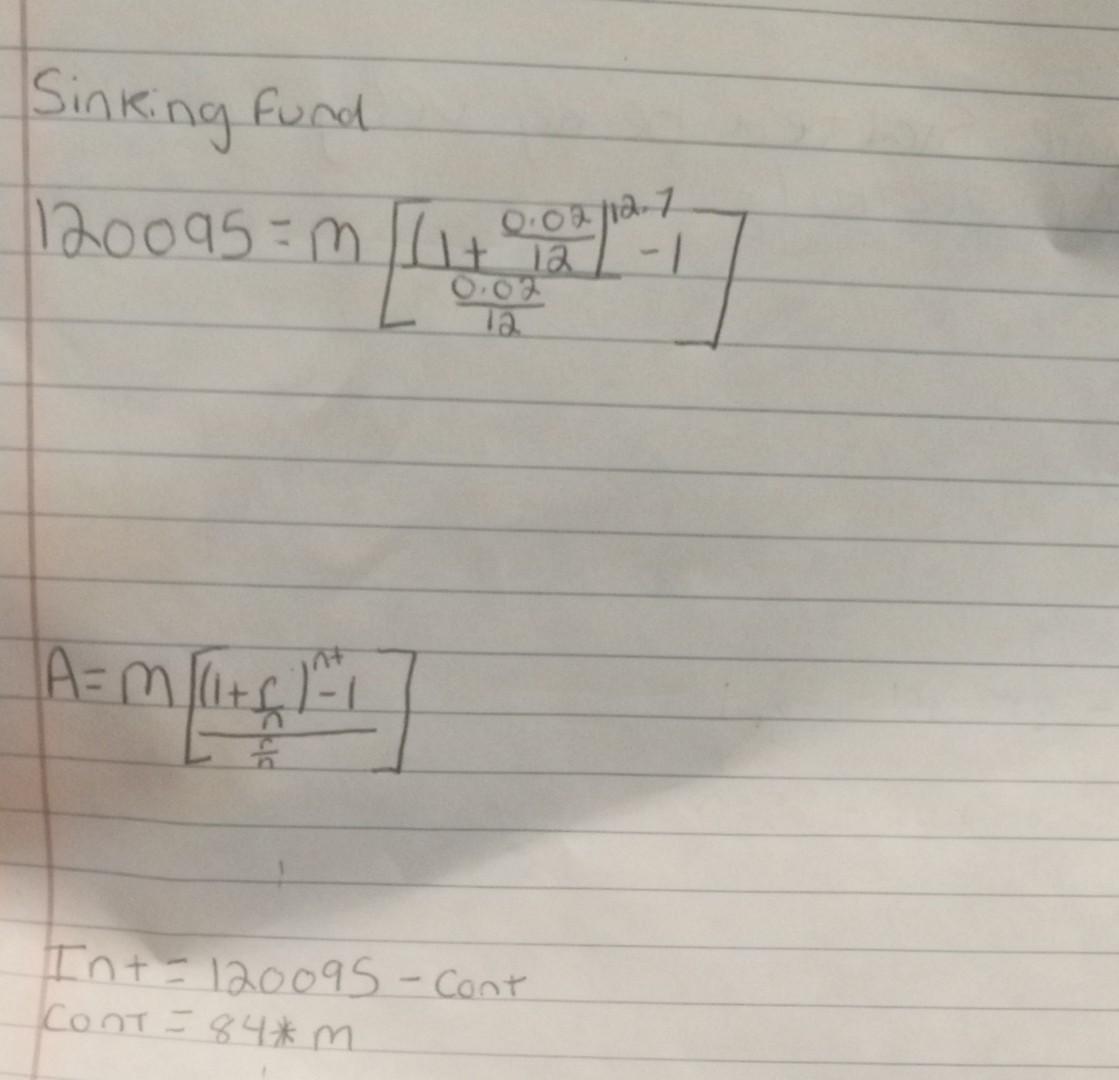 Sinking Fund
120095 = m [((1 + 0.02/12)^12·7 - 1) / (0.02/12)]
A = m [((1 + r/n)^nt - 1) / (r/n)]
Int = 120095 - Cont
Cont = 84 * m